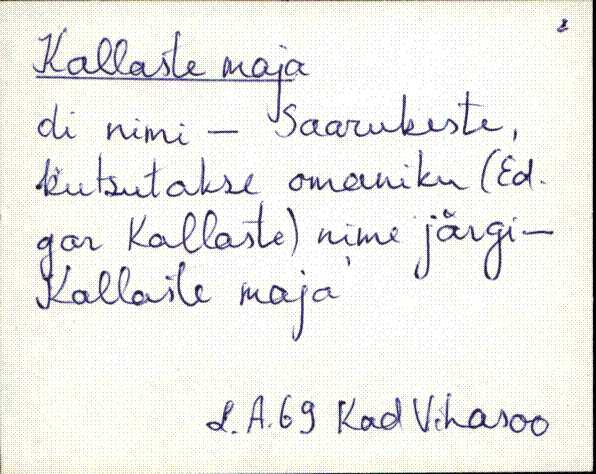 Kallaste maja
di nimi – Saarukeste,
kutsutakse omaniku (Ed.
gar Kallaste) nime järgi –
Kallaste maja
L.A.69 Kad Vihasoo